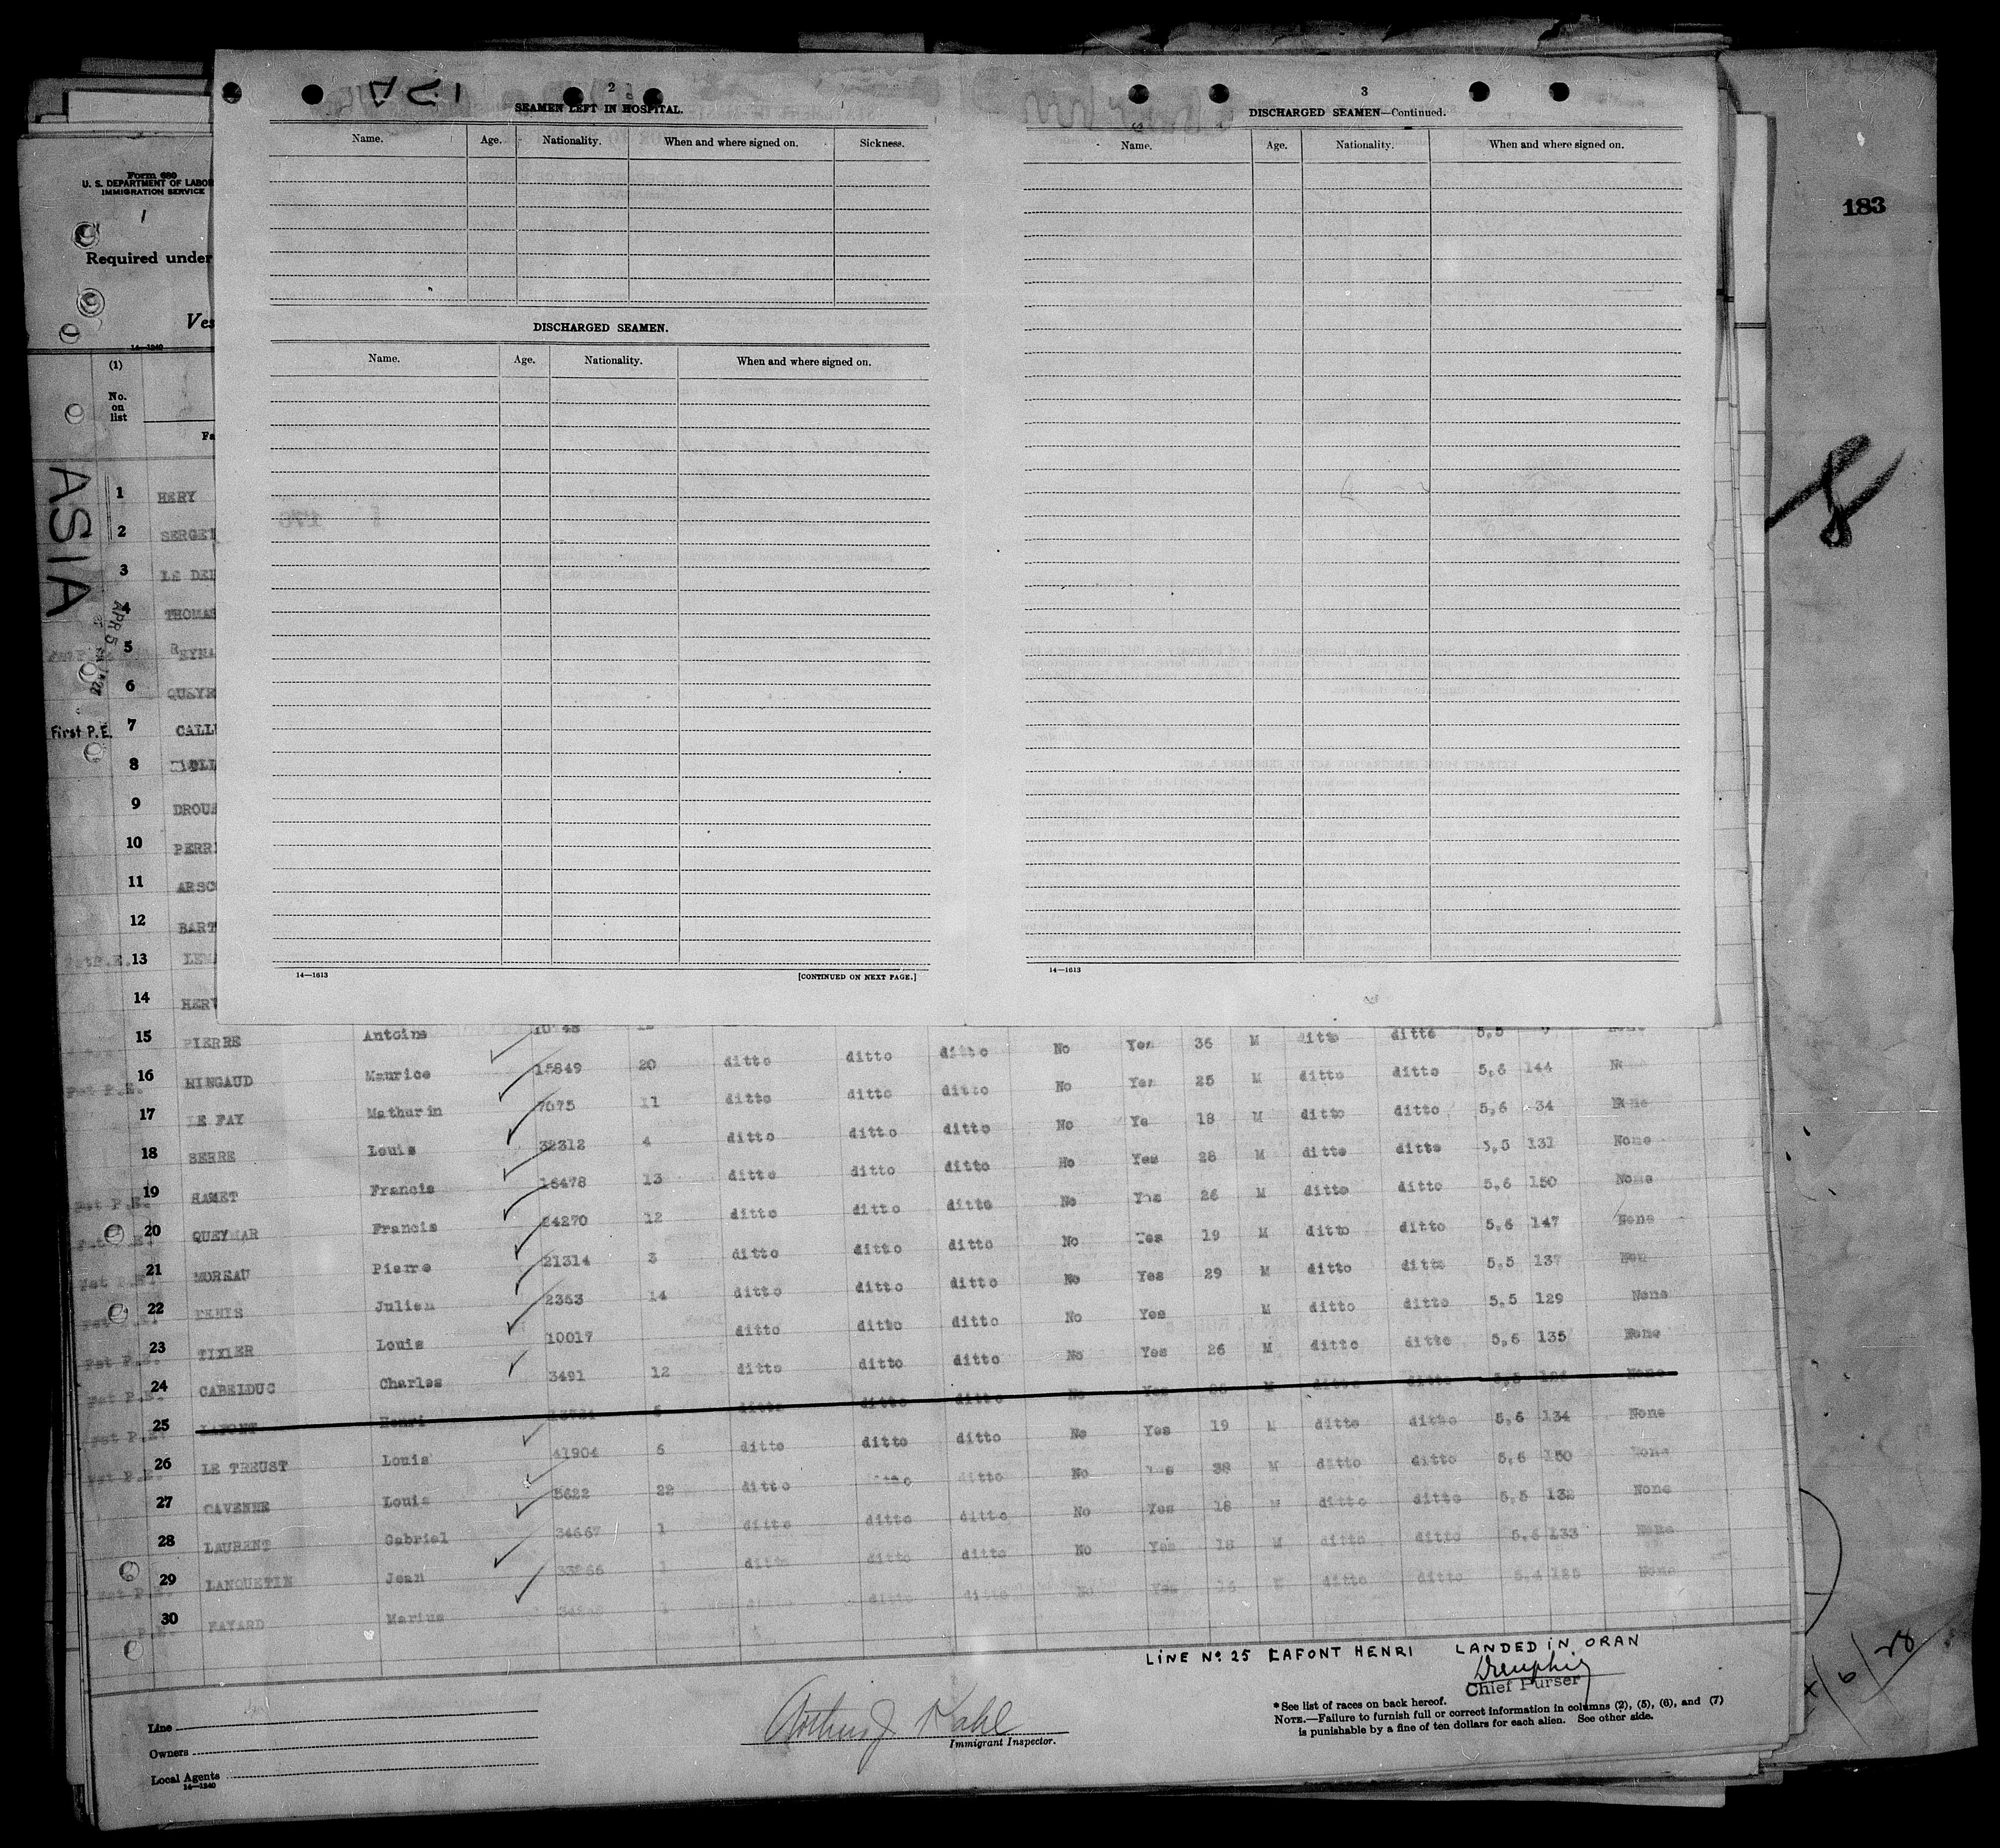 2
SEAMEN LEFT IN HOSPITAL.
Name. Age. Nationality. When and where signed on. Sickness.
DISCHARGED SEAMEN.
Name. Age. Nationality. When and where signed on.
14—1613 [CONTINUED ON NEXT PAGE.]
3
DISCHARGED SEAMEN—Continued.
Name. Age. Nationality. When and where signed on.
14—1613
183
8
Form 680
U. S. DEPARTMENT OF LABO
IMMIGRATION SERVICE
1
Required under
Ves
14—1240
(1)
No.
on
list
Fa
ASIA
APR 5
1 HERY
2 SERGET
3 LE DE
4 THOMAS
5 REYNA
6 QUEYR
First P.E. 7 CALL
8
9 DROUA
10 PERRI
11 ARSCO
12 BART
13 LEM
14 HERV
15 PIERRE Antoine ditto ditto ditto No Yes 36 M ditto ditto 5,5
16 RINGAUD Maurice 15849 20 ditto ditto ditto No Yes 25 M ditto ditto 5,6 144
17 LE FAY Mathurin 7075 11 ditto ditto ditto No Ye 18 M ditto ditto 5,6 34 None
18 BERRE Louis 32312 4 ditto ditto ditto No Yes 28 M ditto ditto 5,5 131 None
19 HAMET Francis 16478 13 ditto ditto ditto No Yes 26 M ditto ditto 5,6 150 None
20 QUEYMAR Francis 24270 12 ditto ditto ditto No Yes 19 M ditto ditto 5,6 147 None
21 MOREAU Pierre 21314 3 ditto ditto ditto No Yes 29 M ditto ditto 5,5 137 Non
22 DENIS Julien 2353 14 ditto ditto ditto No Yes M ditto ditto 5,5 129 None
23 TIXIER Louis 10017 ditto ditto ditto No Yes 26 M ditto ditto 5,6 135 None
24 CABELDUC Charles 3491 12 ditto ditto ditto No Yes M ditto ditto None
25 LAFONT Henri ditto ditto ditto No Yes 19 M ditto ditto 5,6 134 None
26 LE TREUST Louis 41904 5 ditto ditto No Yes 38 M ditto ditto 5,6 150 None
27 CAVENNE Louis 5622 22 ditto ditto ditto No Yes 18 M ditto ditto 5,5 132 None
28 LAURENT Gabriel 34667 1 ditto ditto ditto No Yes 18 M ditto ditto 5,6 133 None
29 LANQUETIN Jean 33266 1 ditto ditto ditto No Yes 16 M ditto ditto None
30 FAYARD Marius 1
LINE No. 25 LAFONT HENRI LANDED IN ORAN
Chief Purser
Line
Owners
Local Agents
14—1240
Arthur J Kahl
Immigrant Inspector.
*See list of races on back hereof.
NOTE.—Failure to furnish full or correct information in columns (2), (5), (6), and (7)
is punishable by a fine of ten dollars for each alien. See other side.